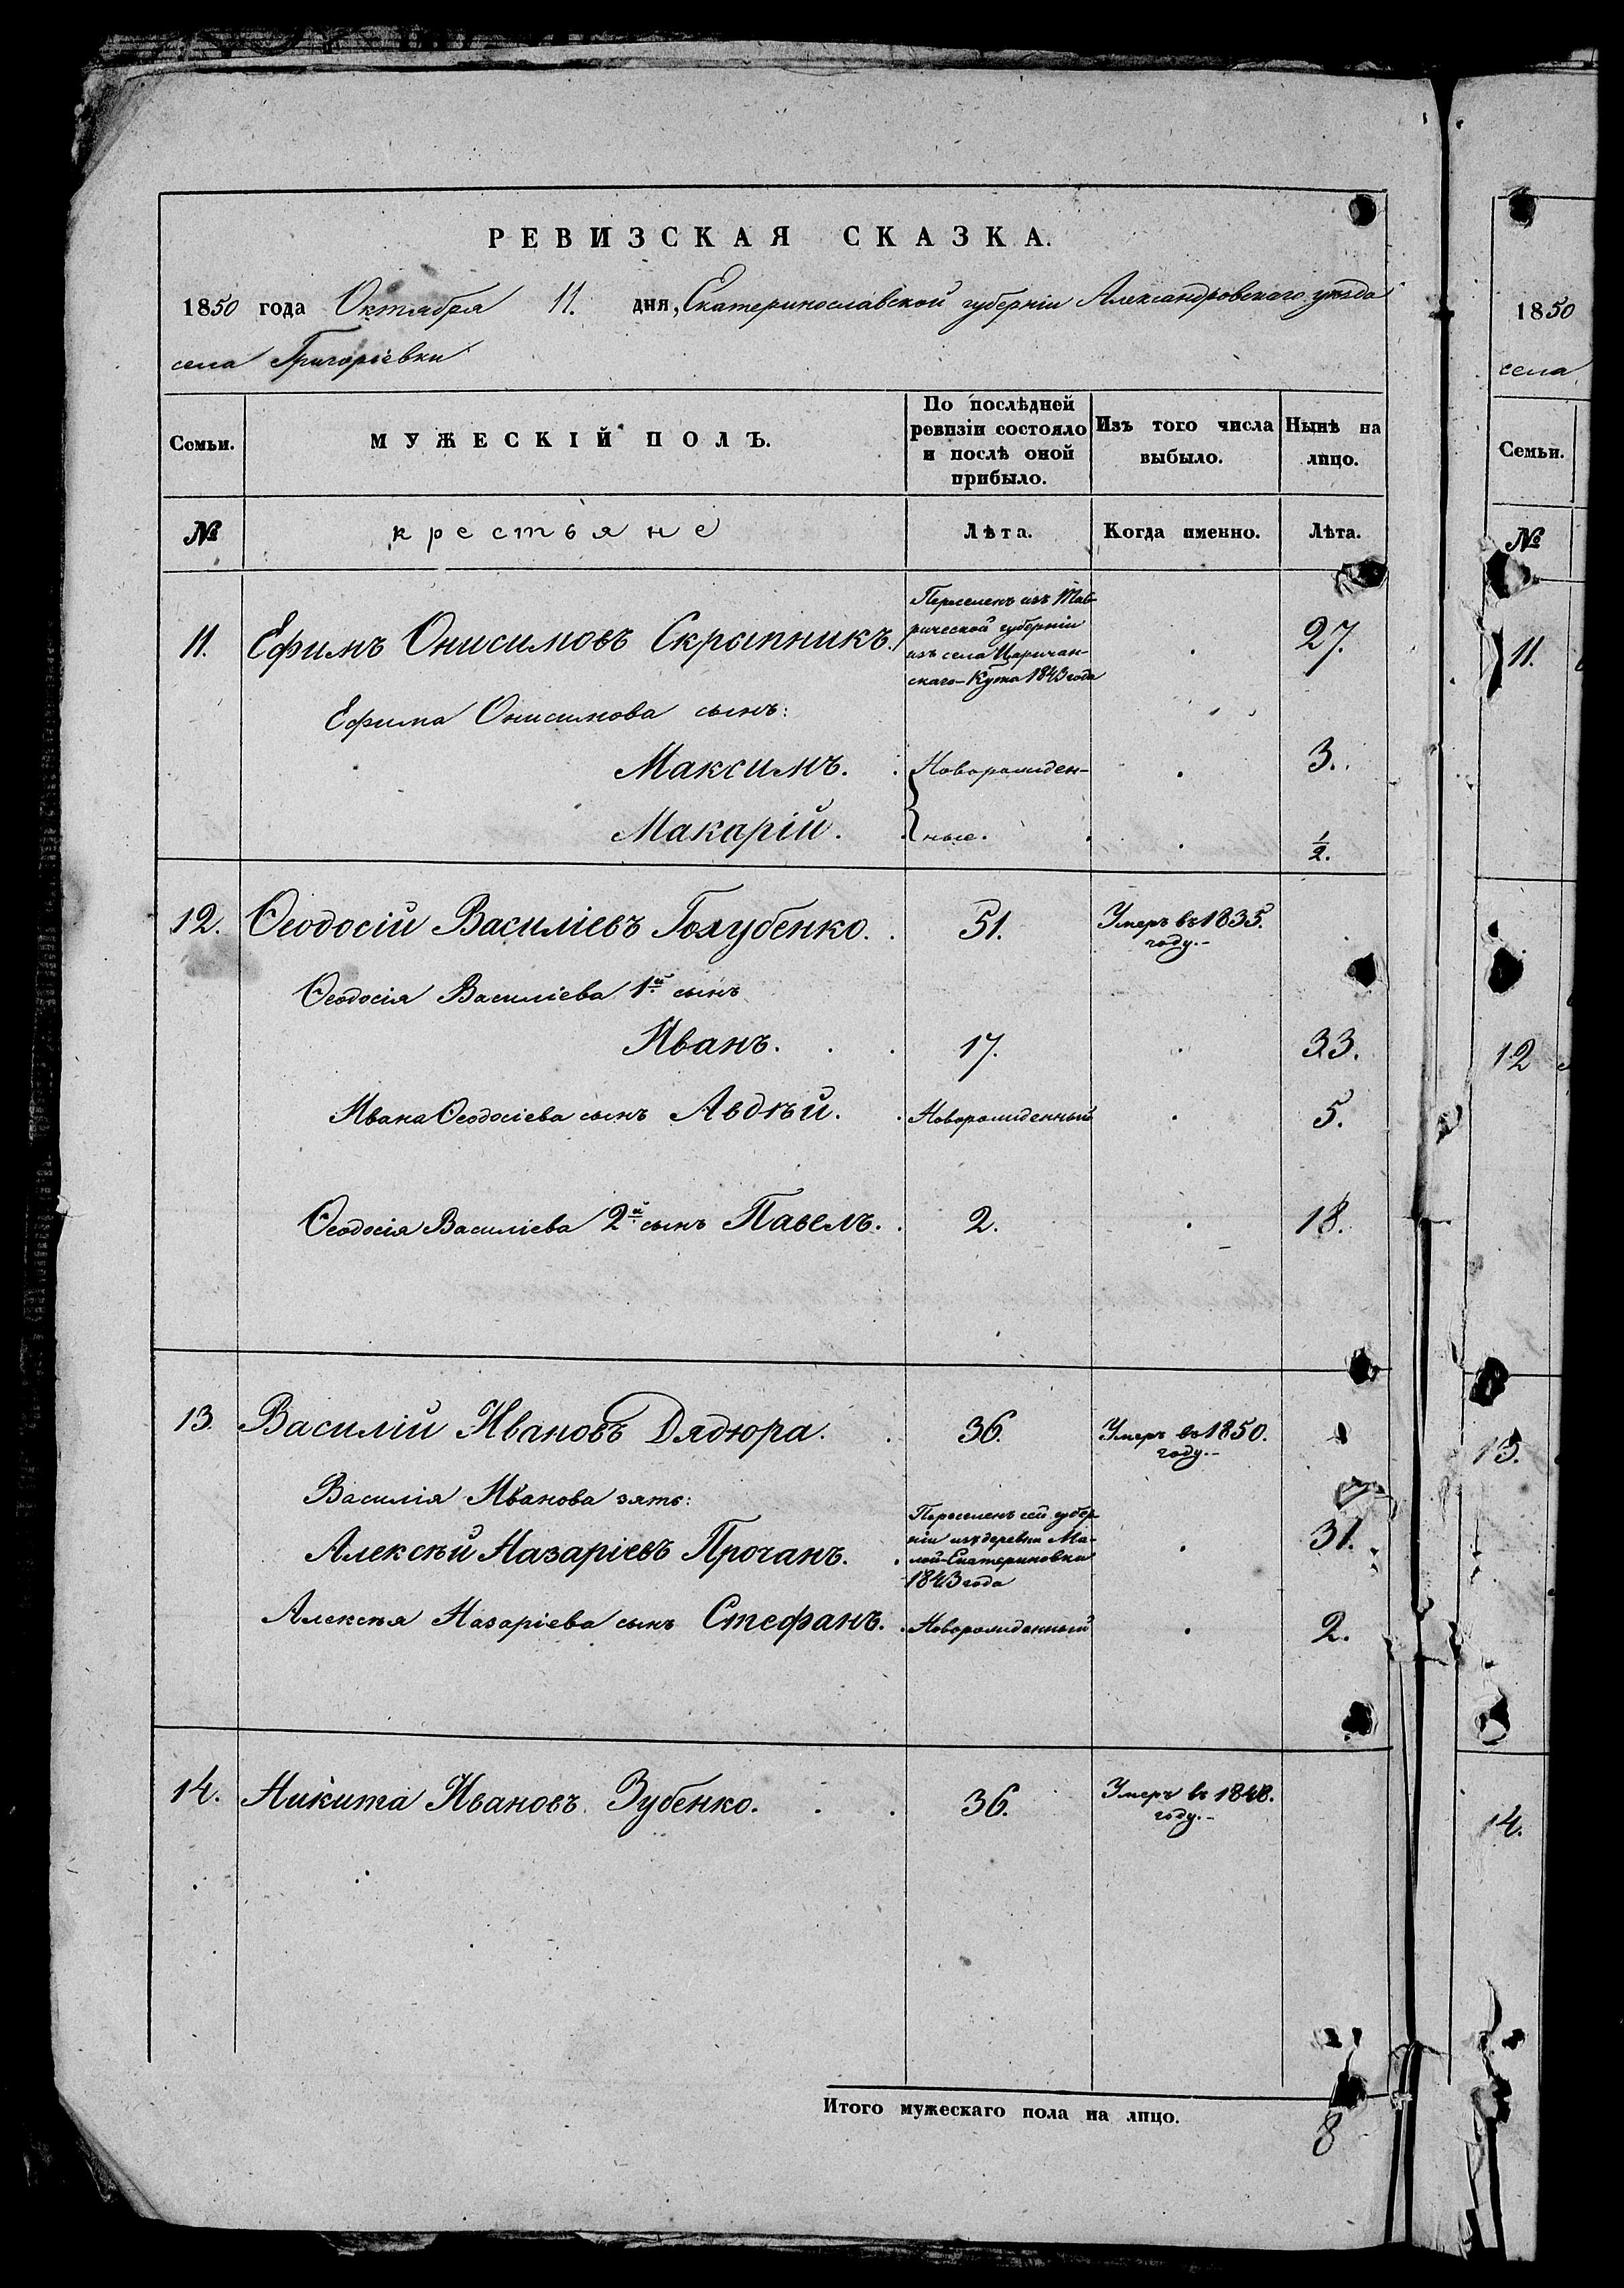 РЕВИЗСКАЯ СКАЗКА.
1850 года Октября 11. дня, Екатеринославской губерніи Александровскаго уѣзда
села Григоріевки
Семьи. МУЖЕСКІЙ ПОЛЪ. По послѣдней ревизіи состояло и послѣ оной прибыло. Изъ того числа выбыло. Нынѣ на лицо.
№ крестьяне Лѣта. Когда именно. Лѣта.
11. Ефимъ Онисимовъ Скрыпникъ. Переселенъ изъ Тав- 27.
рической губерніи
изъ села Царичан-
скаго-Кута 1843 года
Ефима Онисимова сынъ:
Максимъ. Новорожден- 3.
Макарій. ные. ½.
12. Ѳеодосій Василіевъ Голубенко. 51. Умеръ въ 1835.
году.-
Ѳеодосія Василіева 1й сынъ
Иванъ. 17. 33.
Ивана Ѳеодосіева сынъ Авдѣй. Новорожденный 5.
Ѳеодосія Василіева 2й сынъ Павелъ. 2. 18.
13. Василій Ивановъ Дядюра. 36. Умеръ въ 1850.
году.-
Василія Иванова зять: Переселенъ сей губер-
ніи изъ деревни Ма-
Алексѣй Назаріевъ Прочанъ. лой-Екатериновки 31.
1843 года
Алексѣя Назаріева сынъ Стефанъ. Новорожденный 2.
14. Никита Ивановъ Зубенко. 36. Умеръ въ 1848.
году.-
Итого мужескаго пола на лицо. 8
1850
села
Семьи.
№
11.
12
13.
14.